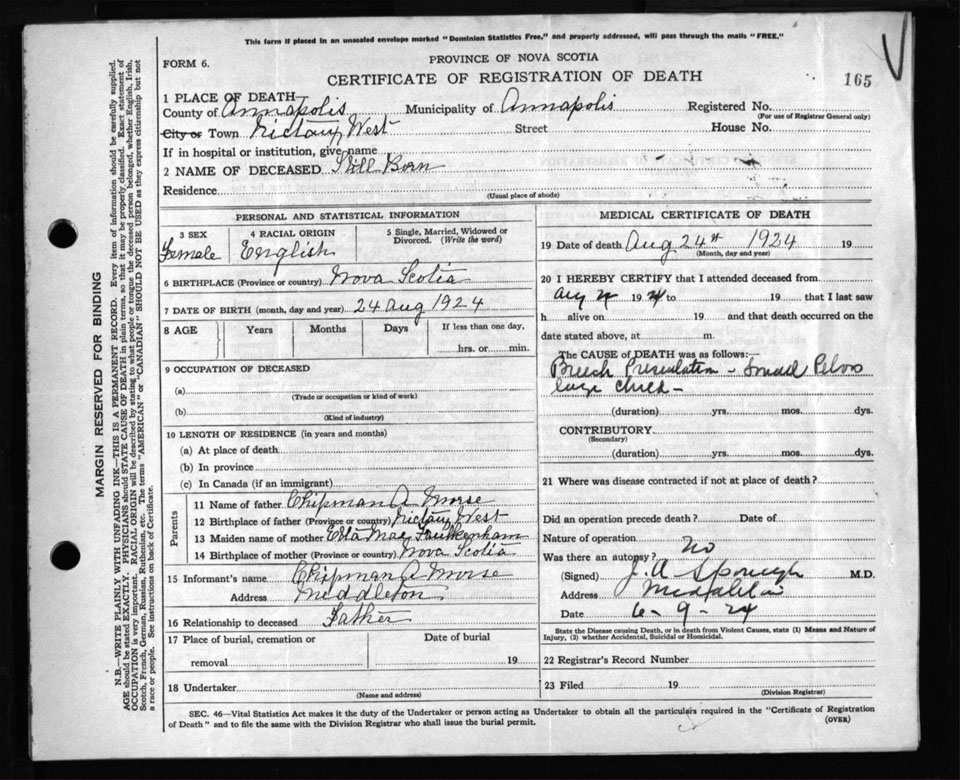 This form if placed in an unsealed envelope marked "Dominion Statistics Free," and properly addressed, will pass through the mails "FREE."
FORM 6.
PROVINCE OF NOVA SCOTIA
CERTIFICATE OF REGISTRATION OF DEATH
165
1 PLACE OF DEATH
County of Annapolis Municipality of Annapolis Registered No.
(For use of Registrar General only)
City or Town Nictaux West Street House No.
If in hospital or institution, give name
2 NAME OF DECEASED Still Born
Residence
(Usual place of abode)
PERSONAL AND STATISTICAL INFORMATION
3 SEX 4 RACIAL ORIGIN 5 Single, Married, Widowed or Divorced. (Write the word)
Female English
6 BIRTHPLACE (Province or country) Nova Scotia
7 DATE OF BIRTH (month, day and year) 24 Aug 1924
8 AGE Years Months Days If less than one day,
hrs. or min.
9 OCCUPATION OF DECEASED
(a)
(Trade or occupation or kind of work)
(b)
(Kind of industry)
10 LENGTH OF RESIDENCE (in years and months)
(a) At place of death
(b) In province
(c) In Canada (if an immigrant)
Parents
11 Name of father Chipman A Morse
12 Birthplace of father (Province or country) Nictaux West
13 Maiden name of mother Etta Mae Faulkenham
14 Birthplace of mother (Province or country) Nova Scotia
15 Informant's name Chipman A Morse
Address Middleton
16 Relationship to deceased Father
17 Place of burial, cremation or Date of burial
removal 19
18 Undertaker
(Name and address)
MEDICAL CERTIFICATE OF DEATH
19 Date of death Aug 24th 1924 19
(Month, day and year)
20 I HEREBY CERTIFY that I attended deceased from
Aug 19 24 to 19 that I last saw
h alive on 19 and that death occurred on the
date stated above, at m.
The CAUSE OF DEATH was as follows:
Breech Presentation - Small Pelvis
large child -
(duration) yrs. mos. dys.
CONTRIBUTORY
(Secondary)
(duration) yrs. mos. dys.
21 Where was disease contracted if not at place of death?
Did an operation precede death? Date of
Nature of operation
Was there an autopsy? No
(Signed) J. A Sponagle M.D.
Address Middleton
Date 6-9-24
State the Disease causing Death, or in death from Violent Causes, state (1) Means and Nature of
Injury, (2) whether Accidental, Suicidal or Homicidal.
22 Registrar's Record Number
23 Filed 19
(Division Registrar)
SEC. 46—Vital Statistics Act makes it the duty of the Undertaker or person acting as Undertaker to obtain all the particulars required in the "Certificate of Registration
of Death" and to file the same with the Division Registrar who shall issue the burial permit.
(OVER)
MARGIN RESERVED FOR BINDING
N.B.—WRITE PLAINLY WITH UNFADING INK—THIS IS A PERMANENT RECORD. Every item of information should be carefully supplied.
AGE should be stated EXACTLY. PHYSICIANS should STATE CAUSE OF DEATH in plain terms, so that it may be properly classified. Exact statement of
OCCUPATION is very important. RACIAL ORIGIN will be described by stating to what people or tongue the deceased person belonged, whether English, Irish,
Scotch, French, German, Russian, Ruthenian, etc. The terms "AMERICAN" or "CANADIAN" SHOULD NOT BE USED as they express citizenship but not
a race or people. See instructions on back of Certificate.